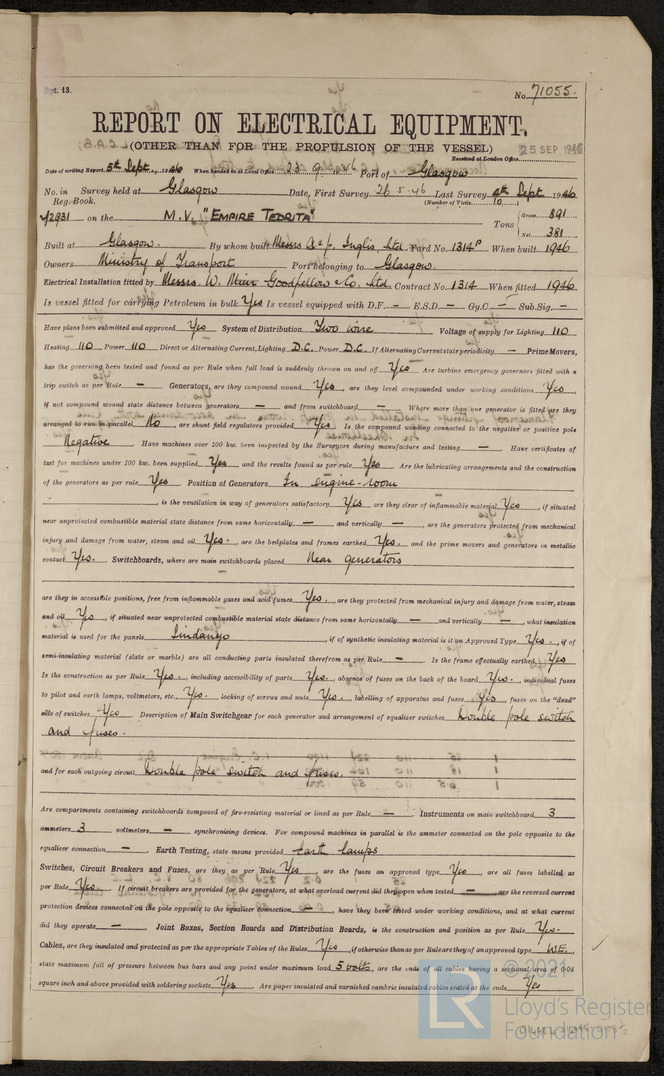 Rpt. 13.
No. 71055.
REPORT ON ELECTRICAL EQUIPMENT.
(OTHER THAN FOR THE PROPULSION OF THE VESSEL)
25 SEP 1946
Received at London Office
Date of writing Report 5th Sept 1946 When handed in at Local Office 23 9 1946 Port of Glasgow
No. in Survey held at Glasgow Date, First Survey 26 5-46 Last Survey 4th Sept 1946
Reg. Book. (Number of Visits 10)
42931 on the M.V. "EMPIRE TEDRITA" Tons Gross 891 Net 381
Built at Glasgow. By whom built Messrs A & J. Inglis, Ltd. Yard No. 1314P When built 1946
Owners Ministry of Transport Port belonging to Glasgow.
Electrical Installation fitted by Messrs. W. Muir Goodfellow & Co. Ltd. Contract No. 1314 When fitted 1946
Is vessel fitted for carrying Petroleum in bulk Yes Is vessel equipped with D.F. — E.S.D. — Gy.C. — Sub.Sig. —
Have plans been submitted and approved Yes System of Distribution Two wire Voltage of supply for Lighting 110
Heating 110 Power 110 Direct or Alternating Current, Lighting D.C. Power D.C. If Alternating Current state periodicity — Prime Movers,
has the governing been tested and found as per Rule when full load is suddenly thrown on and off Yes Are turbine emergency governors fitted with a
trip switch as per Rule — Generators, are they compound wound Yes, are they level compounded under working conditions Yes,
if not compound wound state distance between generators — and from switchboard — Where more than one generator is fitted are they
arranged to run in parallel No, are shunt field regulators provided Yes. Is the compound winding connected to the negative or positive pole
Negative. Have machines over 100 kw. been inspected by the Surveyors during manufacture and testing — Have certificates of
test for machines under 100 kw. been supplied Yes and the results found as per rule Yes. Are the lubricating arrangements and the construction
of the generators as per rule Yes Position of Generators In engine-room
, is the ventilation in way of generators satisfactory Yes are they clear of inflammable material Yes, if situated
near unprotected combustible material state distance from same horizontally — and vertically —, are the generators protected from mechanical
injury and damage from water, steam and oil Yes., are the bedplates and frames earthed Yes. and the prime movers and generators in metallic
contact Yes. Switchboards, where are main switchboards placed Near generators
are they in accessible positions, free from inflammable gases and acid fumes Yes., are they protected from mechanical injury and damage from water, steam
and oil Yes, if situated near unprotected combustible material state distance from same horizontally — and vertically —, what insulation
material is used for the panels Sindanyo, if of synthetic insulating material is it an Approved Type Yes., if of
semi-insulating material (slate or marble) are all conducting parts insulated therefrom as per Rule — Is the frame effectually earthed Yes
Is the construction as per Rule Yes., including accessibility of parts Yes., absence of fuses on the back of the board Yes., individual fuses
to pilot and earth lamps, voltmeters, etc. Yes. locking of screws and nuts Yes., labelling of apparatus and fuses Yes, fuses on the "dead"
side of switches Yes Description of Main Switchgear for each generator and arrangement of equaliser switches Double pole switch
and fuses.
and for each outgoing circuit Double pole switch and fuses.
Are compartments containing switchboards composed of fire-resisting material or lined as per Rule — Instruments on main switchboard 3
ammeters 3 voltmeters — synchronising devices. For compound machines in parallel is the ammeter connected on the pole opposite to the
equaliser connection — Earth Testing, state means provided Earth lamps
Switches, Circuit Breakers and Fuses, are they as per Rule Yes, are the fuses an approved type Yes, are all fuses labelled as
per Rule Yes. If circuit breakers are provided for the generators, at what overload current did they open when tested — are the reversed current
protection devices connected on the pole opposite to the equaliser connection —, have they been tested under working conditions, and at what current
did they operate — Joint Boxes, Section Boards and Distribution Boards, is the construction and position as per Rule Yes.
Cables, are they insulated and protected as per the appropriate Tables of the Rules Yes, if otherwise than as per Rule are they of an approved type W.E.,
state maximum fall of pressure between bus bars and any point under maximum load 5 volts, are the ends of all cables having a sectional area of 0.04
square inch and above provided with soldering sockets Yes. Are paper insulated and varnished cambric insulated cables sealed at the ends Yes
© 2021
LR
Lloyd's Register
Foundation